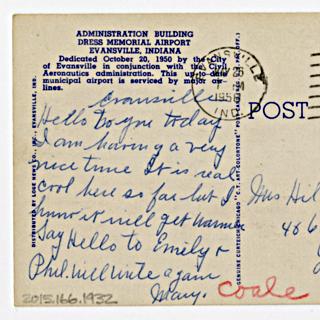 ADMINISTRATION BUILDING
DRESS MEMORIAL AIRPORT
EVANSVILLE, INDIANA
Dedicated October 20, 1950 by the City
of Evansville in conjunction with the Civil
Aeronautics administration. This up-to-date
municipal airport is serviced by major air-
lines.
Hello to you today
I am having a very
nice time It is real
cool here so far but I
know it will get warmer
Say Hello to Emily &
Phil. Will write again
Mary.
DISTRIBUTED BY LOGE NEWS CO., INC., EVANSVILLE, IND.
GENUINE CURTEICH-CHICAGO "C.T. ART-COLORTONE" POST
EVANSVILLE
IND
POST
Mrs
486
Coale
2015.166.1932